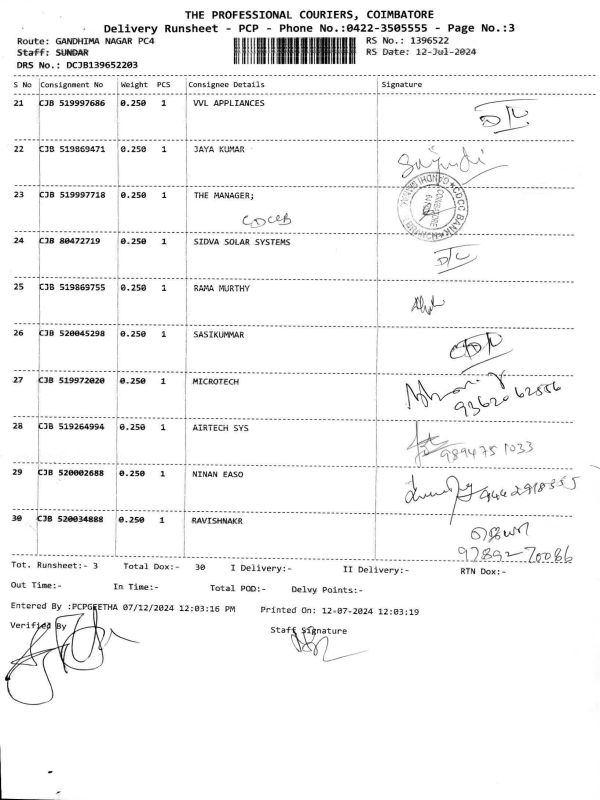 THE PROFESSIONAL COURIERS, COIMBATORE
Delivery Runsheet - PCP - Phone No.:0422-3505555 - Page No.:3
Route: GANDHIMA NAGAR PC4 RS No.: 1396522
Staff: SUNDAR RS Date: 12-Jul-2024
DRS No.: DCJB139652203
S No Consignment No Weight PCS Consignee Details Signature
21 CJB 519997686 0.250 1 VVL APPLIANCES
22 CJB 519869471 0.250 1 JAYA KUMAR
23 CJB 519997718 0.250 1 THE MANAGER;
CDCCB
24 CJB 80472719 0.250 1 SIDVA SOLAR SYSTEMS
D/L
25 CJB 519869755 0.250 1 RAMA MURTHY
26 CJB 520045298 0.250 1 SASIKUMMAR
27 CJB 519972020 0.250 1 MICROTECH
9362062556
28 CJB 519264994 0.250 1 AIRTECH SYS
9894751033
29 CJB 520002688 0.250 1 NINAN EASO
9442918355
30 CJB 520034888 0.250 1 RAVISHNAKR
97892-70086
Tot. Runsheet:- 3 Total Dox:- 30 I Delivery:- II Delivery:- RTN Dox:-
Out Time:- In Time:- Total POD:- Delvy Points:-
Entered By :PCPGEETHA 07/12/2024 12:03:16 PM Printed On: 12-07-2024 12:03:19
Verified By Staff Signature